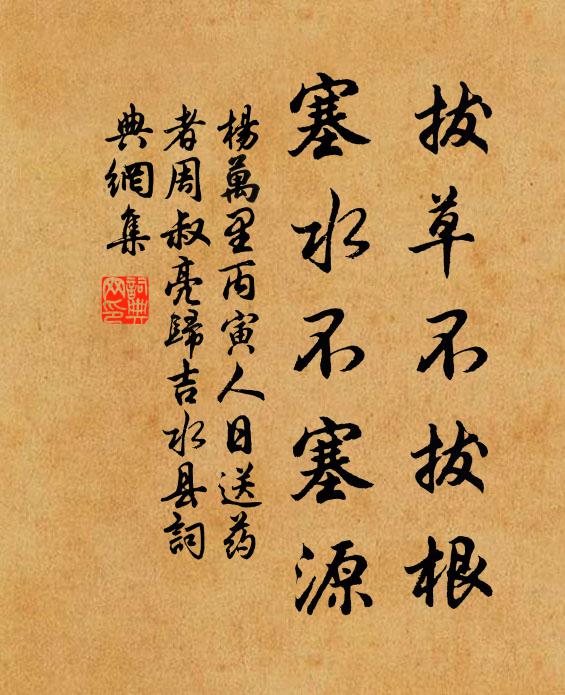 拔草不拔根
塞水不塞源
楊萬里丙寅人日送药
者周叔亮歸吉水县詞
典網集
詞典
网印